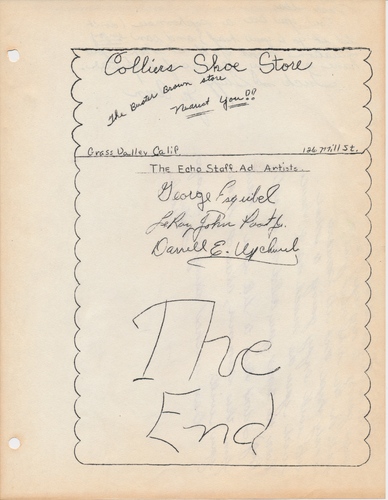 Colliers Shoe Store
The Buster Brown store
Nearest You!!
Grass Valley Calif 126 Mill St.
The Echo Staff Ad Artists
George Esquibel
LeRoy John
Darrell E. Upchurch
The
End